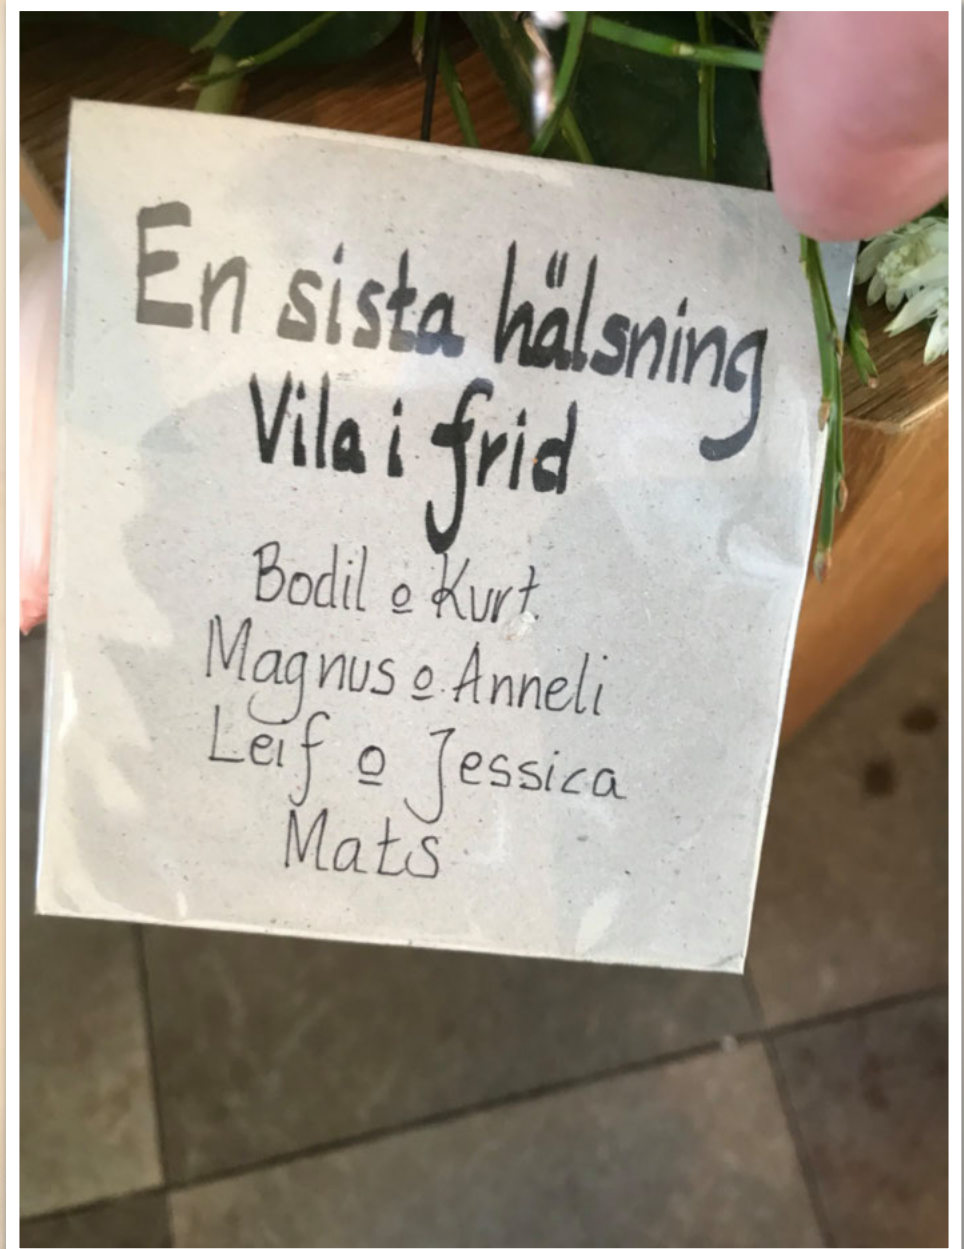 En sista hälsning
Vila i frid
Bodil o Kurt
Magnus o Anneli
Leif o Jessica
Mats